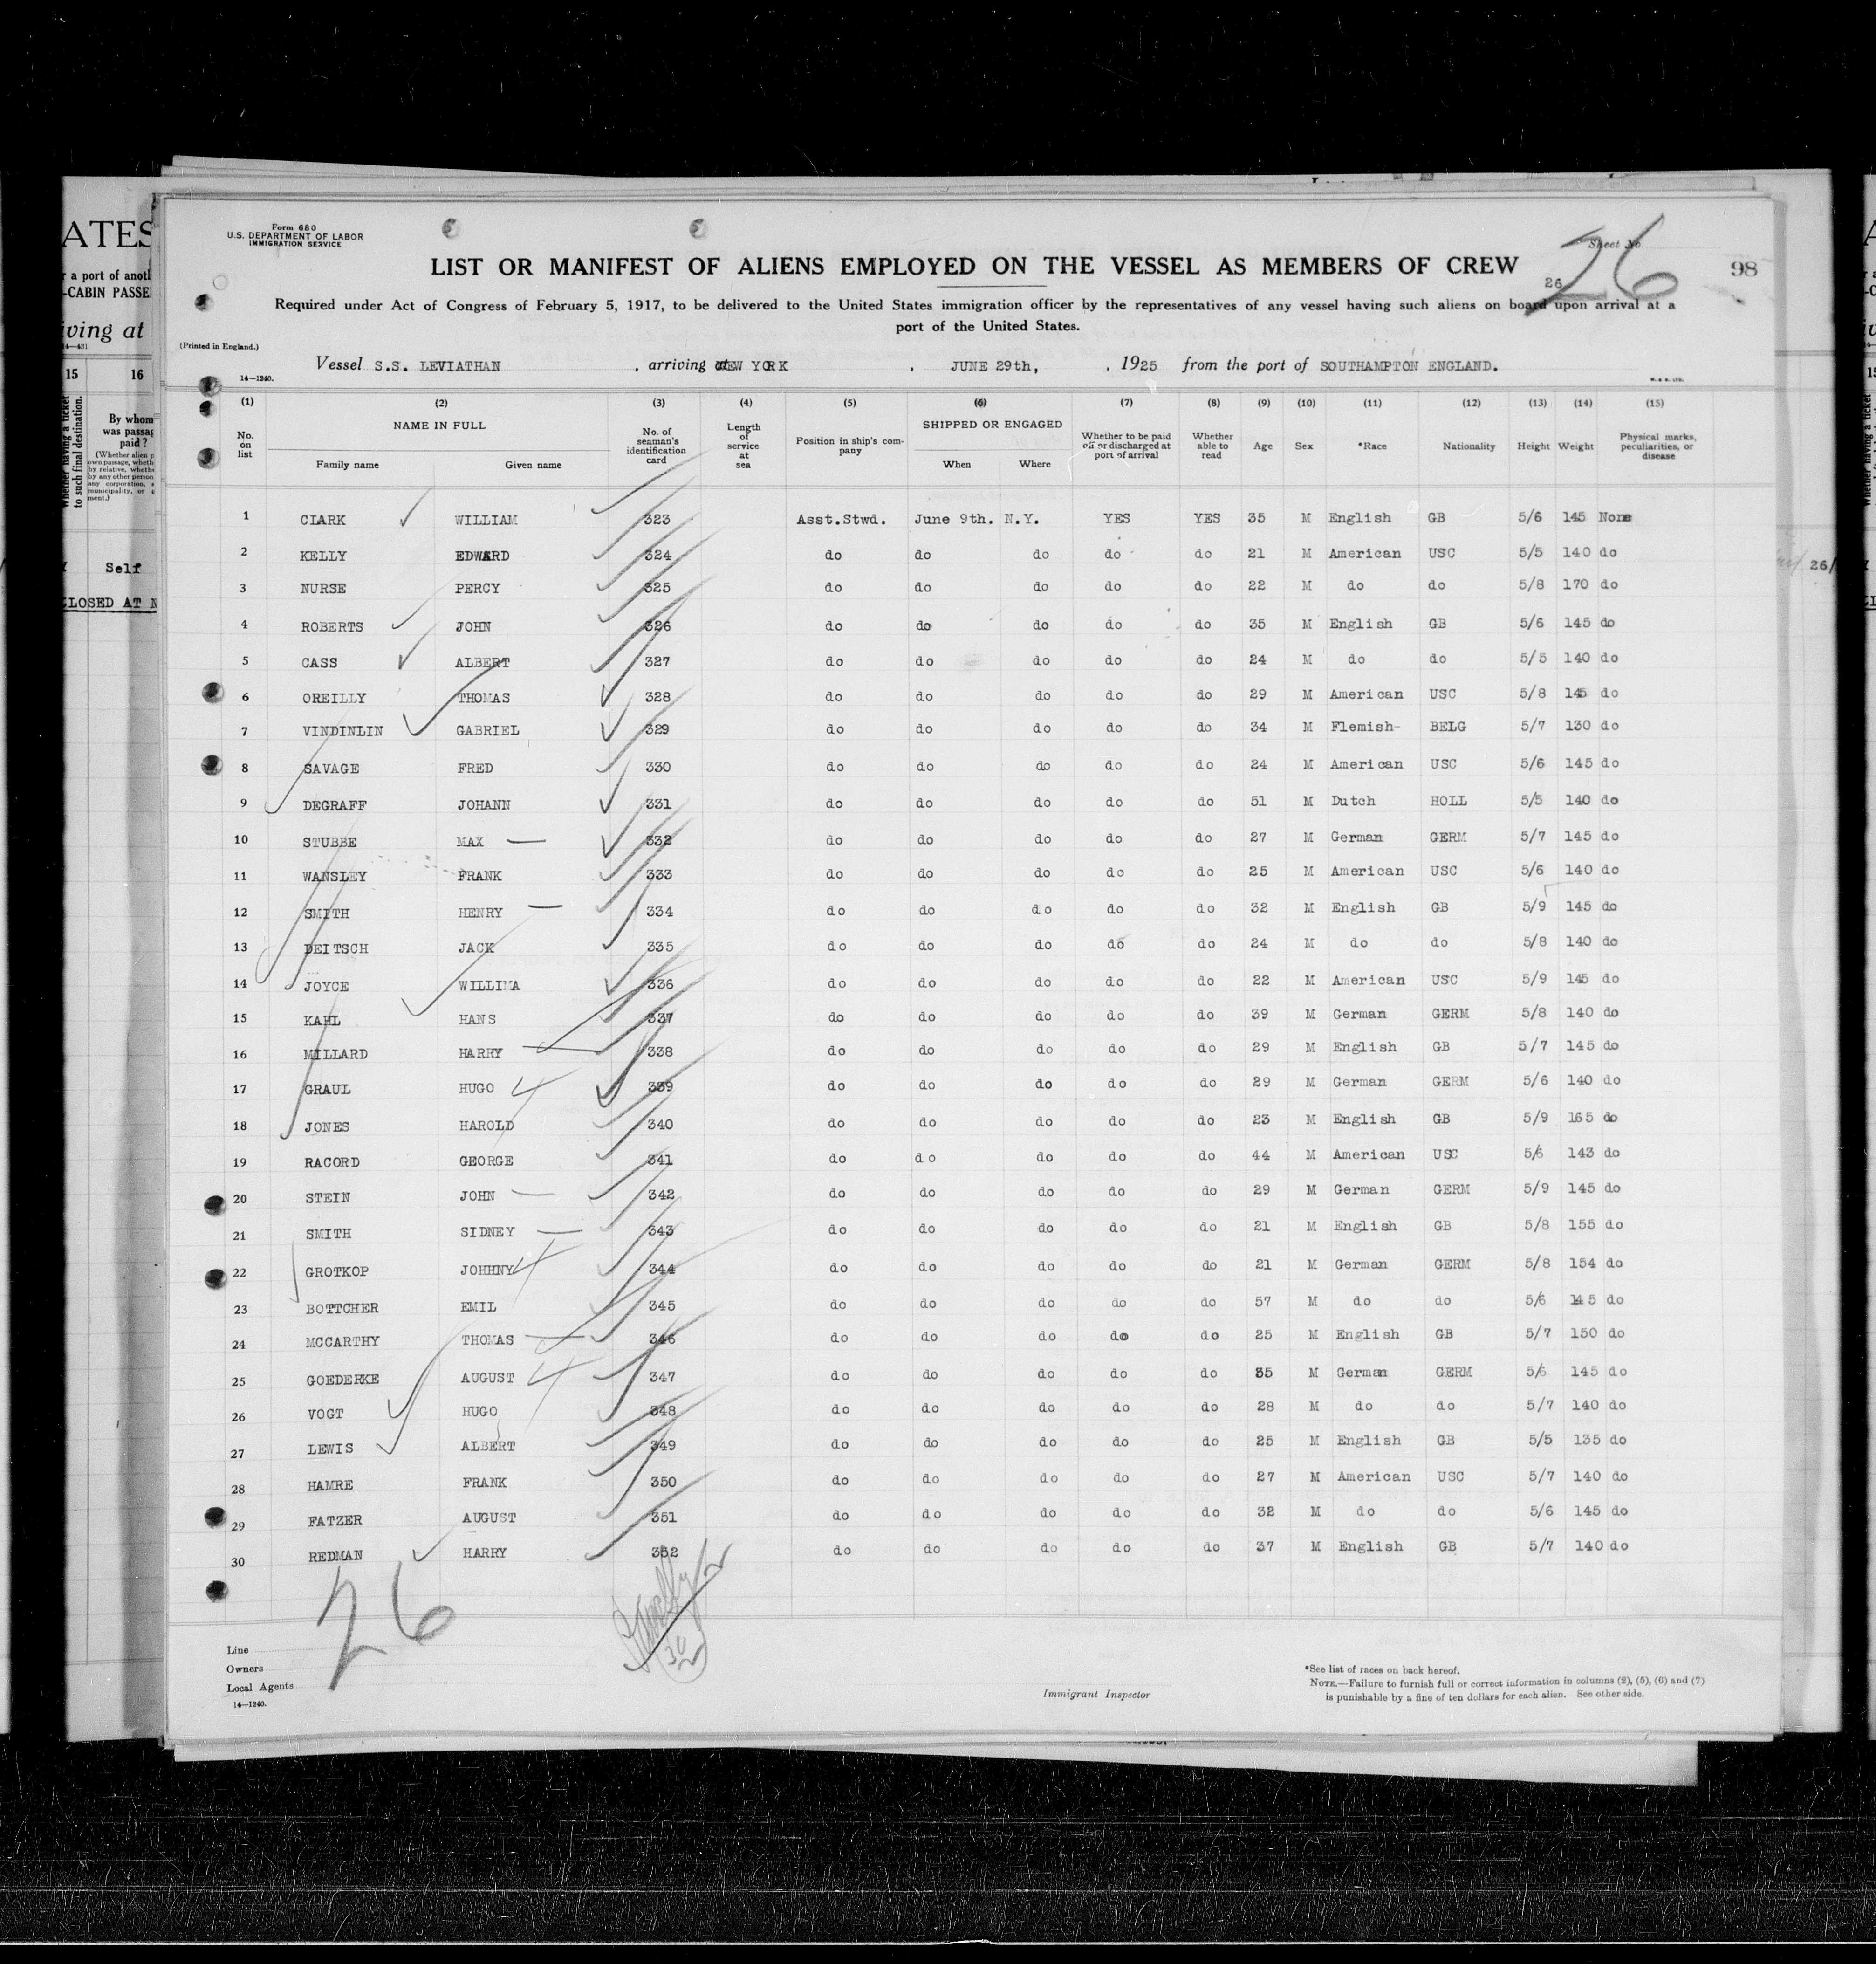 Form 680
U.S. DEPARTMENT OF LABOR
IMMIGRATION SERVICE
Sheet No.
26
26
98
LIST OR MANIFEST OF ALIENS EMPLOYED ON THE VESSEL AS MEMBERS OF CREW
Required under Act of Congress of February 5, 1917, to be delivered to the United States immigration officer by the representatives of any vessel having such aliens on board upon arrival at a
port of the United States.
(Printed in England.)
Vessel S.S. LEVIATHAN , arriving at NEW YORK , JUNE 29th, , 1925 from the port of SOUTHAMPTON ENGLAND.
14—1240.
(1) (2) (3) (4) (5) (6) (7) (8) (9) (10) (11) (12) (13) (14) (15)
No. on list NAME IN FULL Family name Given name No. of seaman's identification card Length of service at sea Position in ship's company SHIPPED OR ENGAGED When Where Whether to be paid off or discharged at port of arrival Whether able to read Age Sex *Race Nationality Height Weight Physical marks, peculiarities, or disease
1 CLARK WILLIAM 323 Asst.Stwd. June 9th. N.Y. YES YES 35 M English GB 5/6 145 None
2 KELLY EDWARD 324 do do do do do 21 M American USC 5/5 140 do
3 NURSE PERCY 325 do do do do do 22 M do do 5/8 170 do
4 ROBERTS JOHN 326 do do do do do 35 M English GB 5/6 145 do
5 CASS ALBERT 327 do do do do do 24 M do do 5/5 140 do
6 OREILLY THOMAS 328 do do do do do 29 M American USC 5/8 145 do
7 VINDINLIN GABRIEL 329 do do do do do 34 M Flemish- BELG 5/7 130 do
8 SAVAGE FRED 330 do do do do do 24 M American USC 5/6 145 do
9 DEGRAFF JOHANN 331 do do do do do 51 M Dutch HOLL 5/5 140 do
10 STUBBE MAX — 332 do do do do do 27 M German GERM 5/7 145 do
11 WANSLEY FRANK 333 do do do do do 25 M American USC 5/6 140 do
12 SMITH HENRY — 334 do do do do do 32 M English GB 5/9 145 do
13 DEITSCH JACK 335 do do do do do 24 M do do 5/8 140 do
14 JOYCE WILLIMA 336 do do do do do 22 M American USC 5/9 145 do
15 KAHL HANS 337 do do do do do 39 M German GERM 5/8 140 do
16 MILLARD HARRY — 338 do do do do do 29 M English GB 5/7 145 do
17 GRAUL HUGO 339 do do do do do 29 M German GERM 5/6 140 do
18 JONES HAROLD 340 do do do do do 23 M English GB 5/9 165 do
19 RACORD GEORGE 341 do do do do do 44 M American USC 5/6 143 do
20 STEIN JOHN — 342 do do do do do 29 M German GERM 5/9 145 do
21 SMITH SIDNEY — 343 do do do do do 21 M English GB 5/8 155 do
22 GROTKOP JOHHNY 344 do do do do do 21 M German GERM 5/8 154 do
23 BOTTCHER EMIL 345 do do do do do 57 M do do 5/6 145 do
24 MCCARTHY THOMAS — 346 do do do do do 25 M English GB 5/7 150 do
25 GOEDERKE AUGUST 347 do do do do do 35 M German GERM 5/6 145 do
26 VOGT HUGO 348 do do do do do 28 M do do 5/7 140 do
27 LEWIS ALBERT 349 do do do do do 25 M English GB 5/5 135 do
28 HAMRE FRANK 350 do do do do do 27 M American USC 5/7 140 do
29 FATZER AUGUST 351 do do do do do 32 M do do 5/6 145 do
30 REDMAN HARRY 352 do do do do do 37 M English GB 5/7 140 do
26
Line
Owners
Local Agents
14—1240.
Immigrant Inspector
*See list of races on back hereof.
NOTE.—Failure to furnish full or correct information in columns (2), (5), (6) and (7)
is punishable by a fine of ten dollars for each alien. See other side.
ATES
r a port of anoth
-CABIN PASSE
iving at
14—431
15 16
Whether having a ticket to such final destination.
By whom
was passag
paid ?
Self
CLOSED AT N
26/